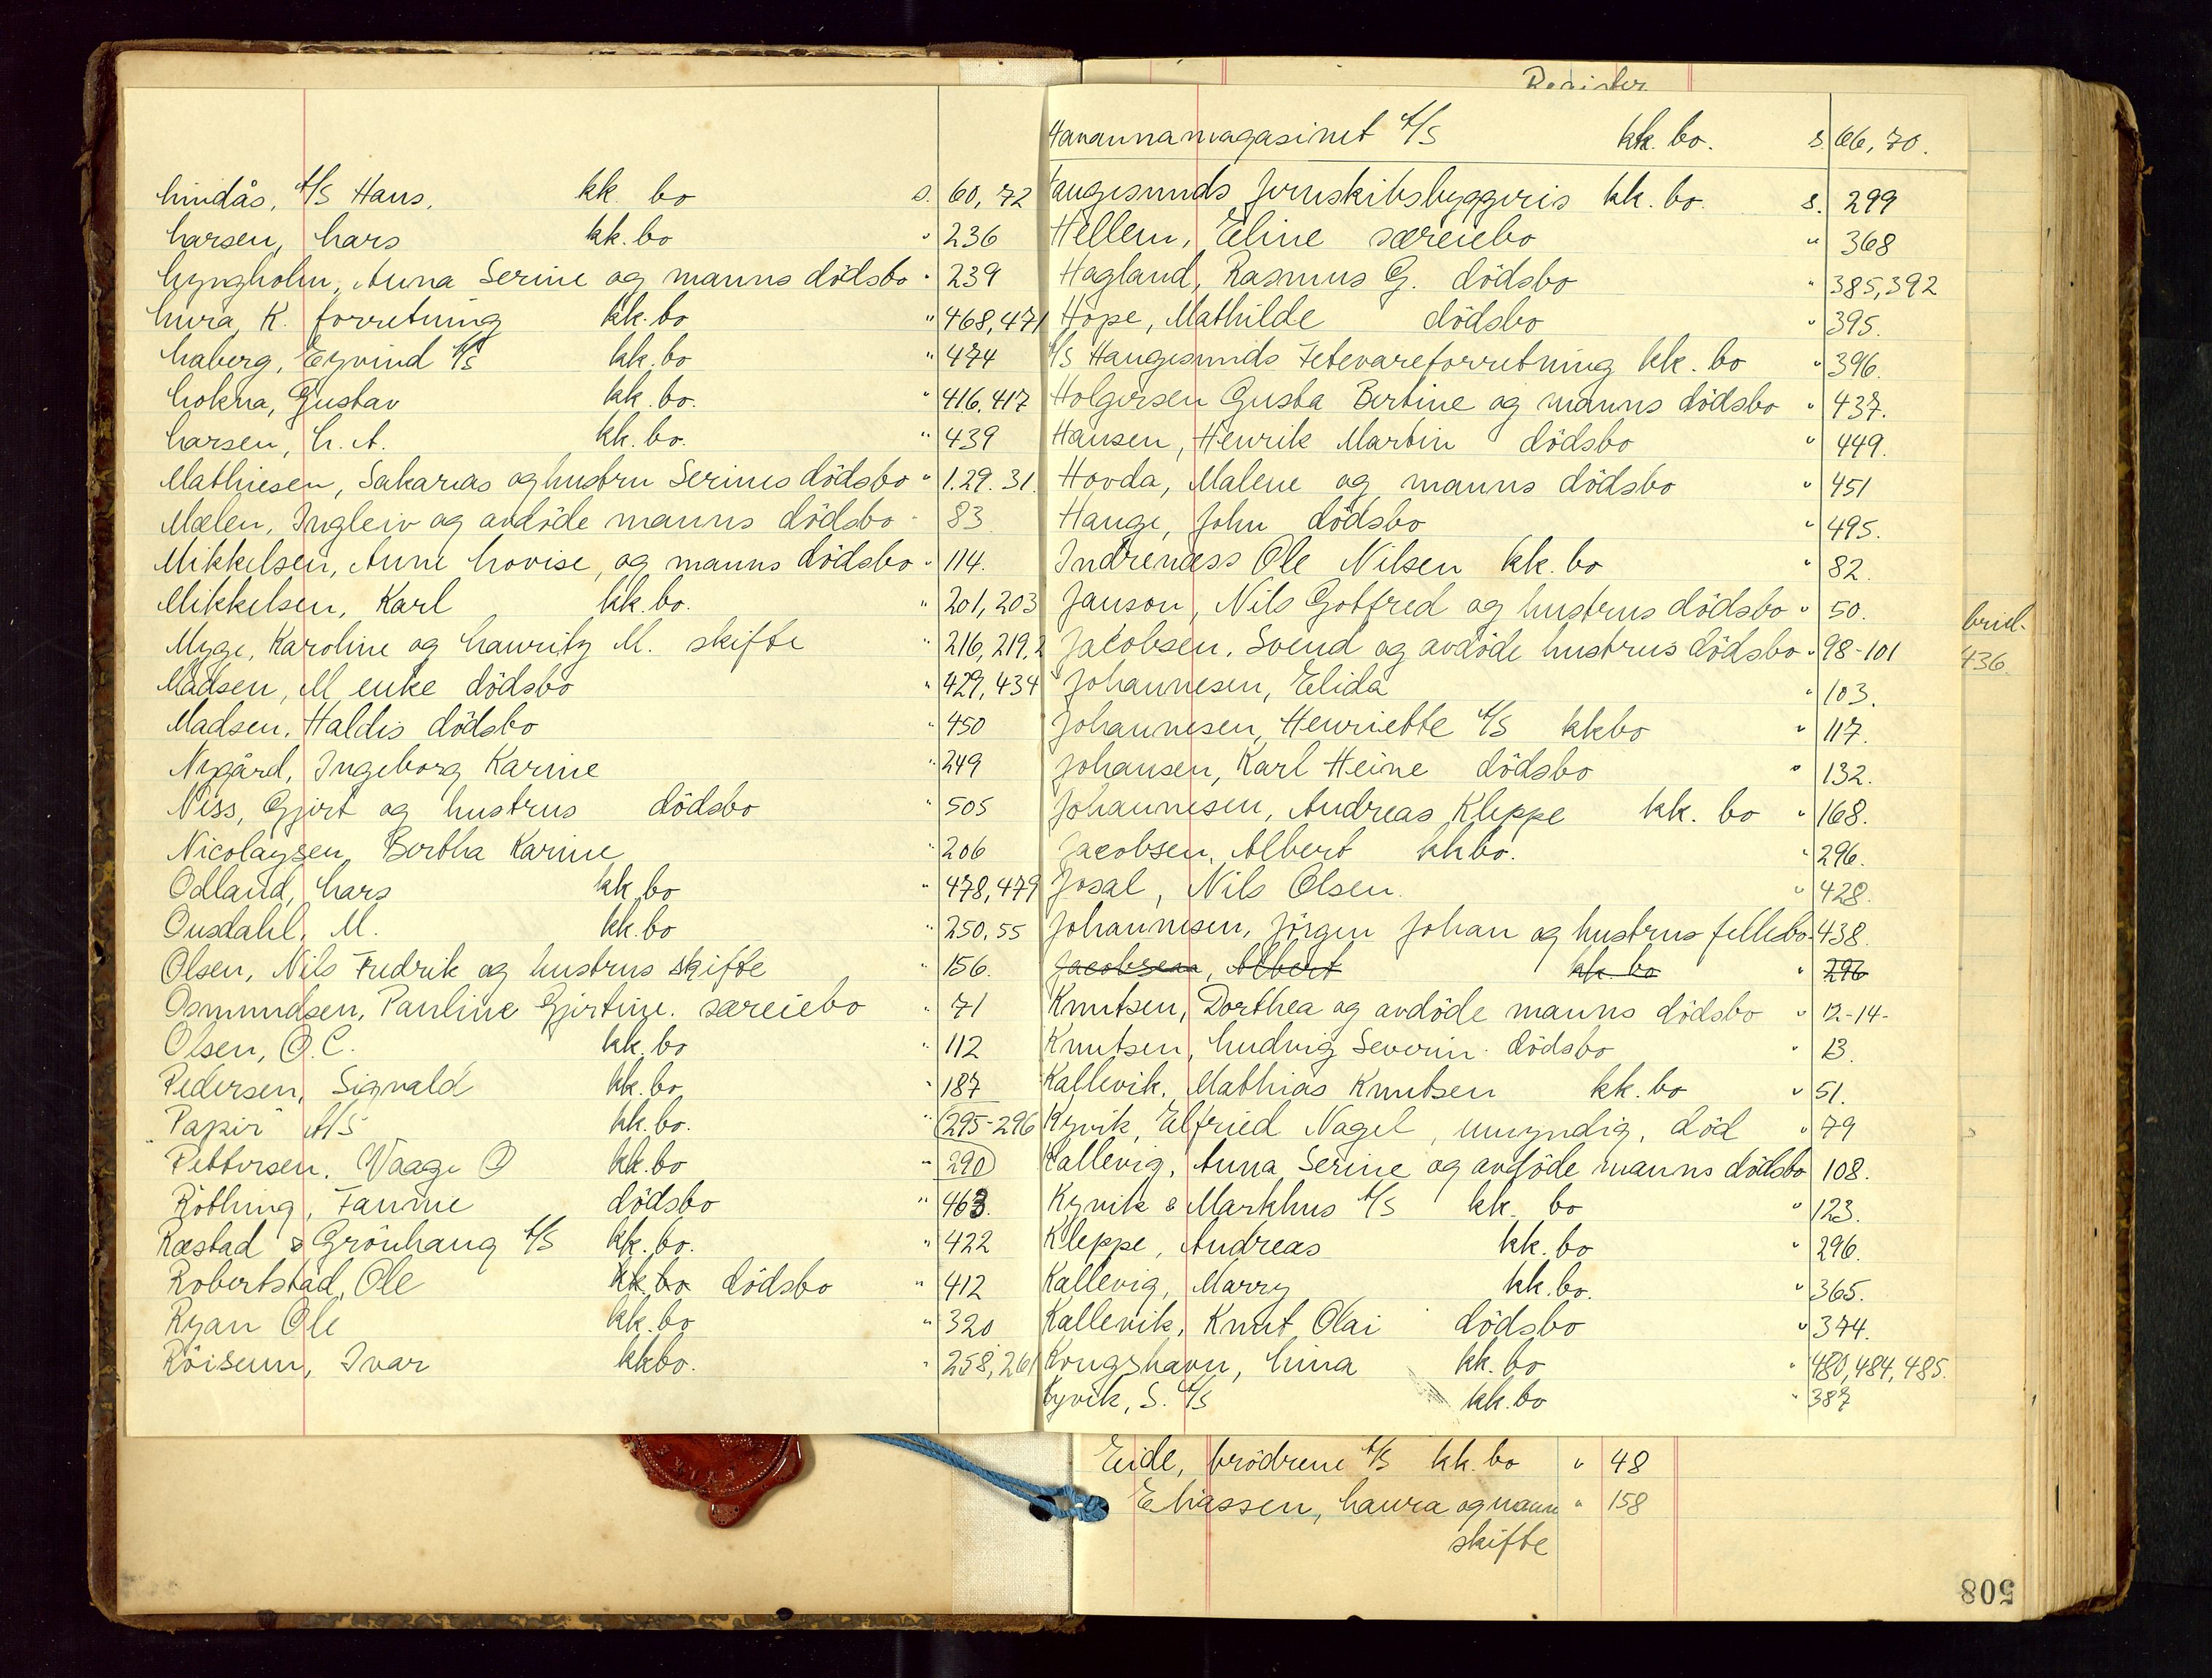 Lindås, A/S Hans, kk. bo s. 60, 72
Larsen, Lars kk. bo " 236
Lyngholm, Anna Serine og manns dödsbo " 239
Lura, K. forretning kk. bo " 468, 471
Laberg, Eyvind A/S kk. bo " 474
Lokna, Gustav kk. bo. " 416, 417
Larsen, L. A. kk. bo. " 439
Mathiesen, Sakarias og hustru Serines dödsbo " 1. 29. 31.
Mælen, Ingleiv og avdöde manns dödsbo - 83
Mikkelsen, Anne Lovise, og manns dödsbo " 114.
Mikkelsen, Karl kk. bo. " 201, 203
Myge, Karoline og Lauritz M. skifte " 216, 219, 2
Madsen, M enke dödsbo " 429, 434
Madsen, Haldis dödsbo " 450
Nygård, Ingeborg Karine " 249
Niss, Gjert og hustrus dödsbo " 505
Nicolaysen, Bertha Karine " 206
Odland, Lars kk. bo " 478, 479
Ousdahl, M. kk. bo " 250, 55
Olsen, Nils Fredrik og hustrus skifte " 156.
Osmundsen, Pauline Gjertine. særeiebo " 71
Olsen, O. C. kk. bo " 112
Pedersen, Sigvald kk. bo " 187
"Papir" A/S kk. bo. " 295-296
Pettersen, Vaage O kk. bo " 290
Röthing, Fannie dödsbo " 463.
Ræstad & Grönhaug A/S kk. bo. " 422
Robertstad, Ole kk. bo dödsbo " 412
Ryan Ole kk. bo " 320
Röisum, Ivar kkbo. " 258, 261
Register
Havannamagasinet A/S kk. bo. s. 66, 70.
Haugesunds Jernskibsbyggeris kk. bo. s. 299
Hellem, Eline særeiebo " 368
Hagland, Rasmus G. dödsbo " 385, 392
Hope, Mathilde dödsbo " 395.
A/S Haugesunds Fetevareforretning kk. bo " 396.
Holgersen Gusta Bertine og manns dödsbo " 437.
Hansen, Henrik Martin dödsbo " 449.
Hovda, Malene og manns dödsbo " 451
Hauge, John dödsbo " 495.
Indrenæss Ole Nilsen kk. bo " 82.
Janson, Nils Gotfred og hustrus dödsbo " 50.
Jacobsen, Svend og avdöde hustrus dödsbo " 98-101
Johannesen, Elida " 103.
Johannesen, Henriette A/S kkbo " 117.
Johansen, Karl Heine dödsbo " 132.
Johannesen, Andreas Kleppe kk. bo " 168.
Jacobsen, Albert kkbo. " 296.
Josal, Nils Olsen. " 428.
Johannesen, Jörgen Johan og hustrus fellesbo. 438.
Jacobsen, Albert kk. bo " 296
Knutsen, Dorthea og avdöde manns dödsbo " 12-14-
Knutsen, Ludvig Severin. dödsbo " 13.
Kallevik, Mathias Knutsen kk. bo " 51.
Kyvik, Elfried Nagel, umyndig, död " 79
Kallevig, Anna Serine og avdöde manns dödsbo 108.
Kyvik & Markhus A/S kk. bo " 123.
Kleppe, Andreas kk. bo " 296.
Kallevig, Marry kk. bo. " 365.
Kallevik, Knut Olai dödsbo " 374.
Kongshavn, Lina kk. bo " 480, 484, 485.
Kyvik, S. A/S kk. bo " 387
436.
Eide, brödrene A/S kk. bo " 48
Eliassen, Laura og mann " 158
skifte
508